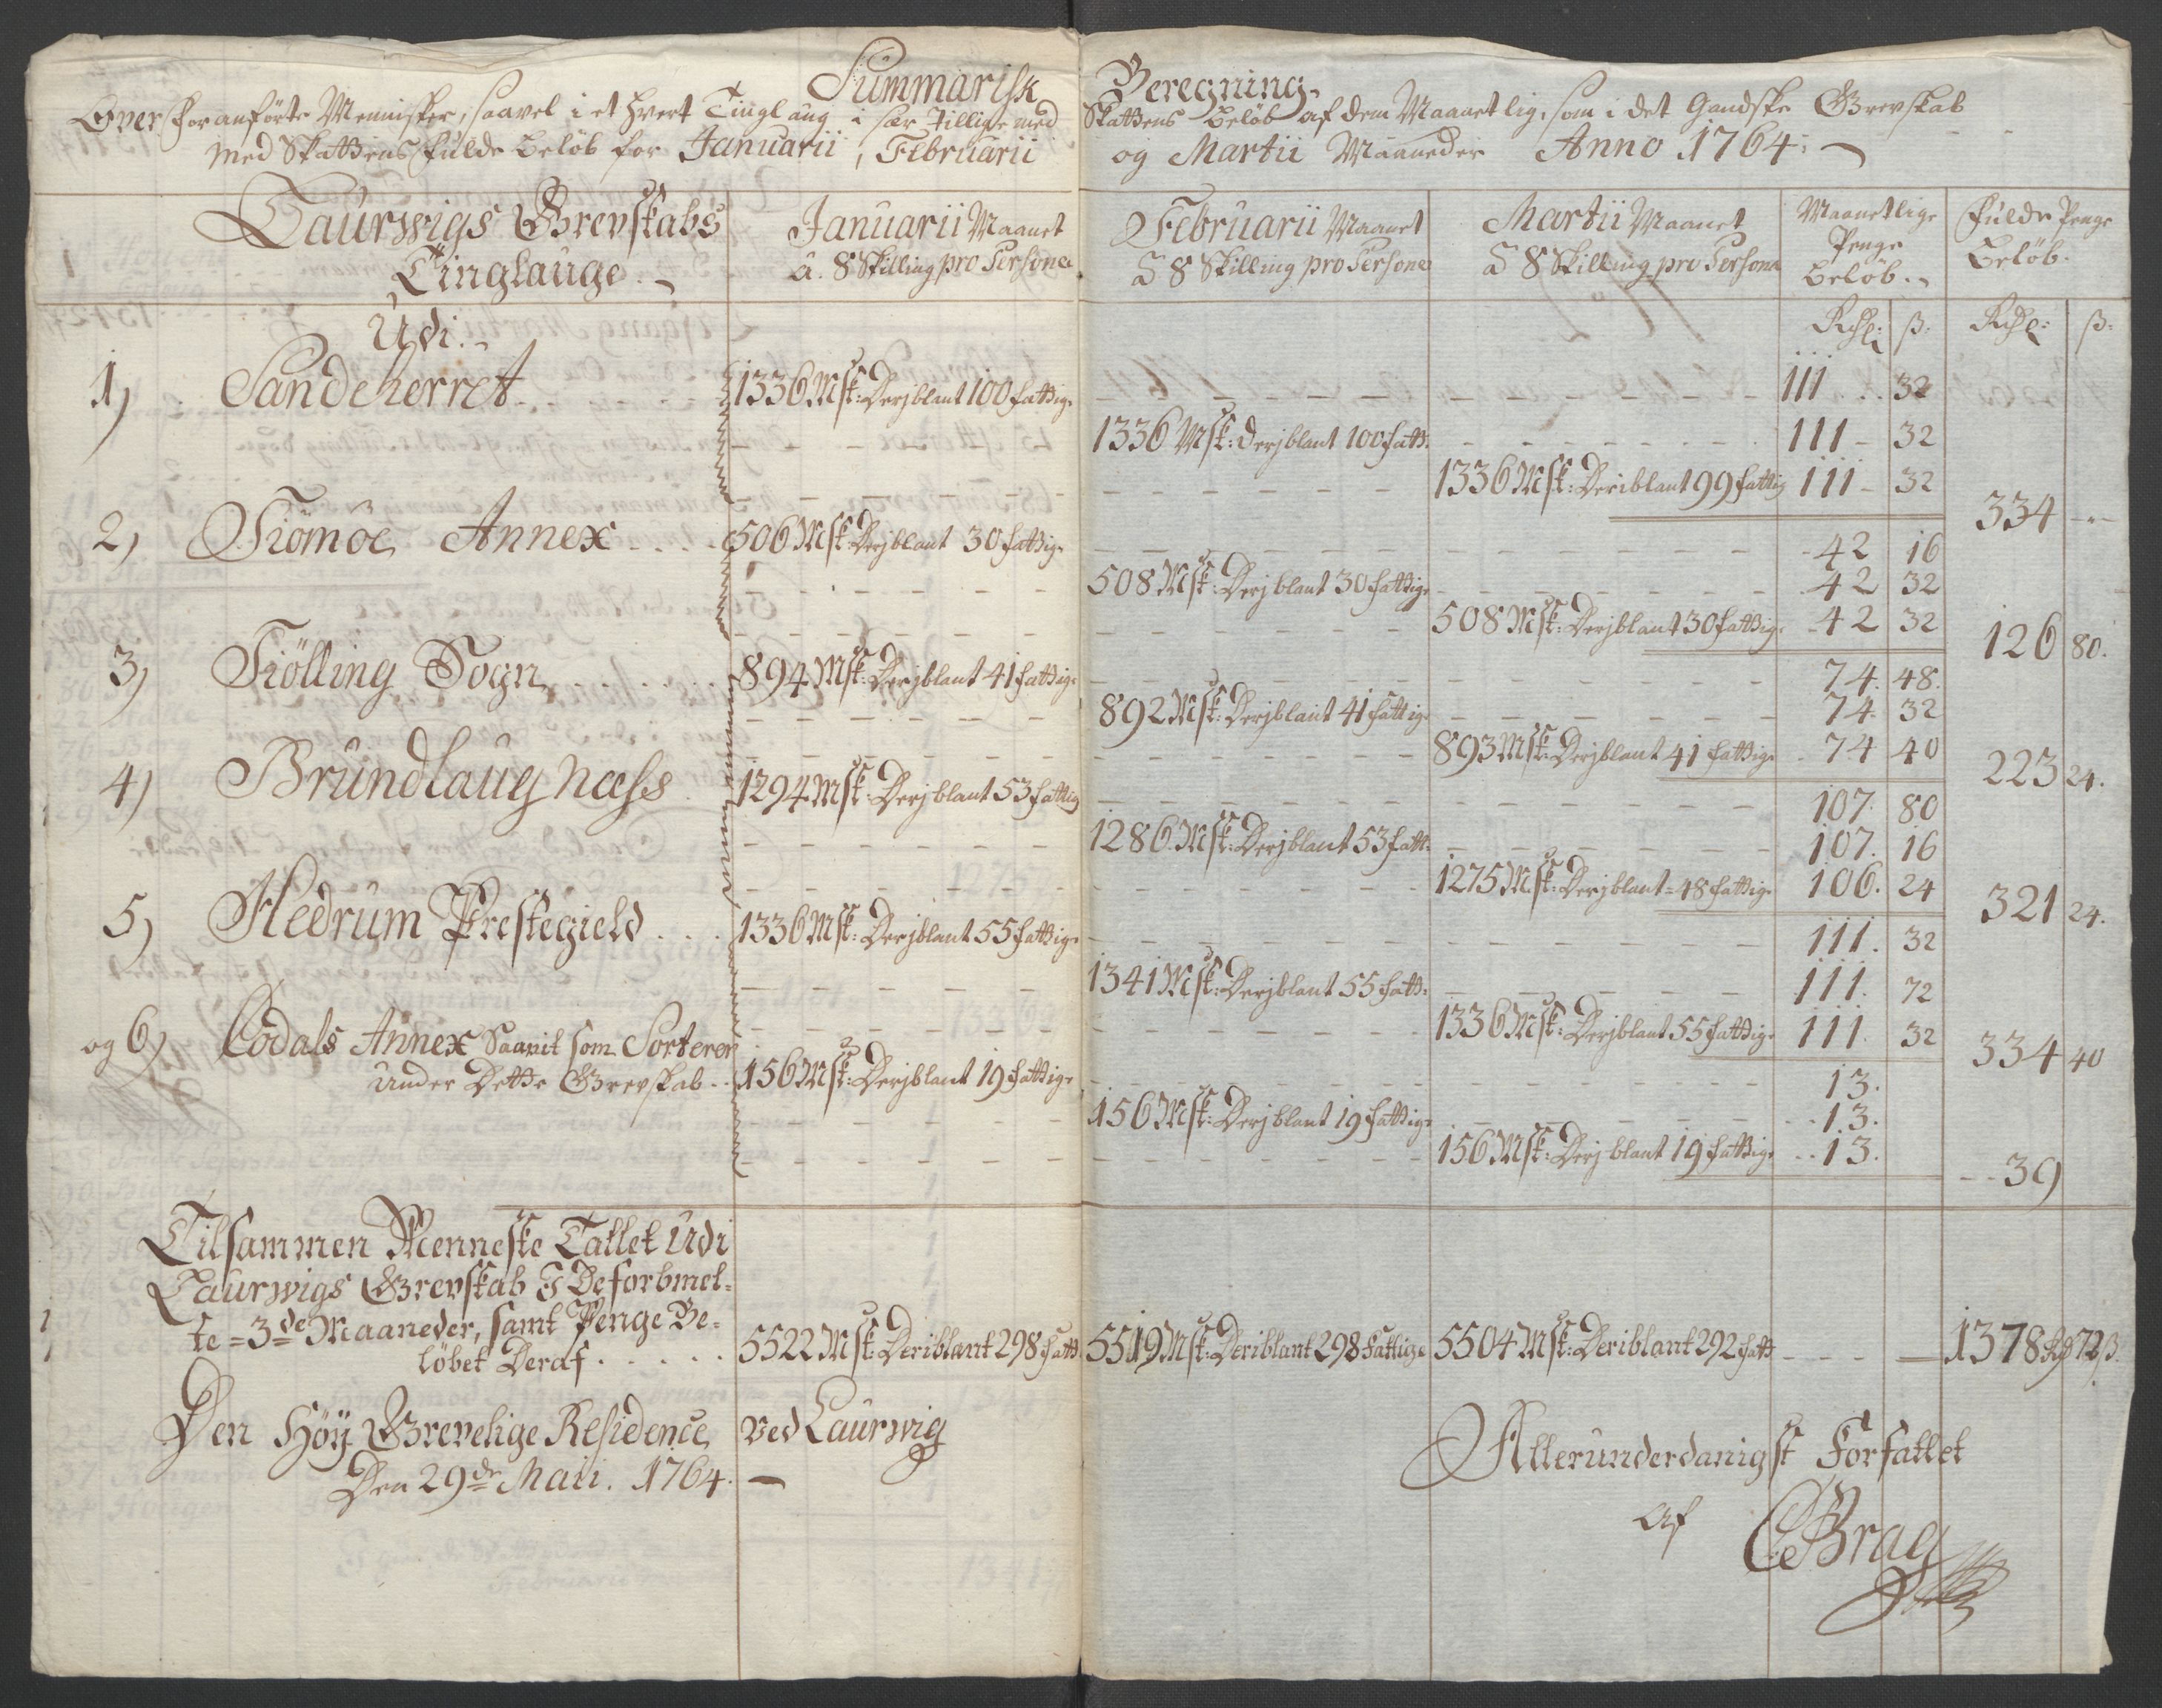 Summarisk Beregning
Over foranførte Mennisker, saavel i et hvert Tinglaug i sær tillige med Skattens Beløb af dem Maanetlig, som i det Gandske Grevskab
med Skattens fulde beløb for Januarii, Februarii og Martii Maaneder Anno 1764:
Laurwigs Grevskabs Tinglauge. Januarii Maanet a. 8 Skilling pro Persone Februarii Maanet a 8 Skilling pro Persone Martii Maanet a 8 Skilling pro Persona Maanetlige Penge beløb. Fulde Penge Beløb.
Udi. Rdl: ß: Rdl: ß:
1) Sandeherret 1336 Msk: Derjblant 100 fattige 111 32
1336 Msk: derjblant 100 fatt: 111 32
1336 Msk: Deriblant 99 fattig 111 32
334
2) Tiømøe Annex 506 Msk Derjblant 30 fattige 42 16
508 Msk: Derjblant 30 fattige 42 32
508 Msk: Derjblant 30 fattige 42 32
126 80.
3) Tiølling Sogn 894 Msk: Derjblant 41 fattige 74. 48.
892 Msk: Derjblant 41 fattige 74. 32
893 Msk: Derjblant 41 fattige 74 40
223 24.
4) Brundlaugnæss 1294 Msk: Derjblant 53 fattig 107. 80
1286 Msk: Derjblant 53 fatt: 107. 16
1275 Msk: Derjblant 48 fattige 106. 24
321 24.
5) Hedrum Prestegield 1336 Msk: Derjblant 55 fattige 111. 32
1341 Msk: Derjblant 55 fatt: 111. 72
1336 Msk: Derjblant 55 fattige 111. 32
334 40
og 6) Lodals Annex Saavit som Sorterer
under Dette Grevskab 156 Msk: Derjblant 19 fattige 13.
156 Msk: Derjblant 19 fattige 13.
156 Msk: Derjblant 19 fattige 13.
39
Tilsammen Menneske Tallet Udi
Laurwigs Grevskab I De forbmel-
te = 3de Maaneder, samt Penge Be-
løbet Deraf 5522 Msk: Deriblant 298 fatt: 5519 Msk: Deriblant 298 Fattige 5504 Msk: Deriblant 292 fatt 1378 Rd 72 ß.
Den Høy Grevelige Residence ved Laurwig
Den 29de Maii. 1764.
Allerunderdanigst Forfattet
af CBrag